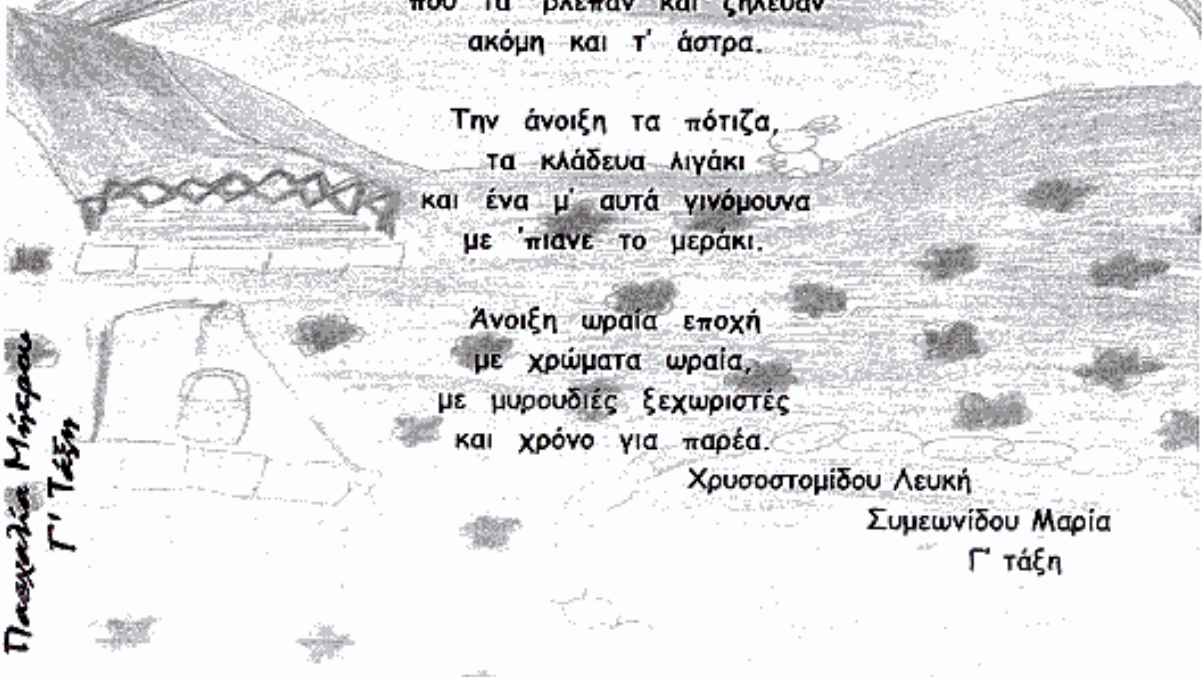 που τα 'βλεπαν και ζήλευαν
ακόμη και τ' άστρα.
Την άνοιξη τα πότιζα,
τα κλάδευα λιγάκι
και ένα μ' αυτά γινόμουνα
με 'πιανε το μεράκι.
Άνοιξη ωραία εποχή
με χρώματα ωραία,
με μυρουδιές ξεχωριστές
και χρόνο για παρέα.
Χρυσοστομίδου Λευκή
Συμεωνίδου Μαρία
Γ' τάξη
Πασχαλία
Γ' Τάξη